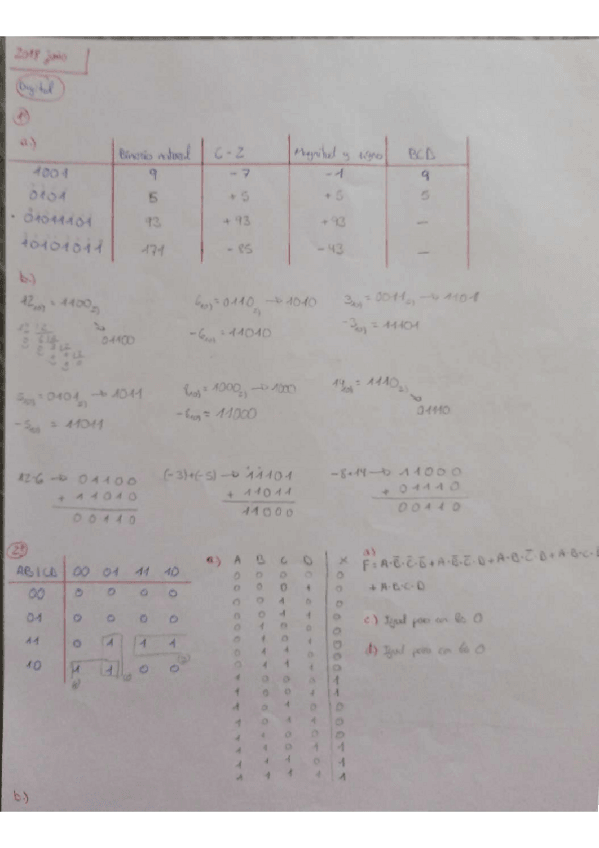 2019 junio
Digital
1º
a.)
Binario natural C-2 Magnitud y signo BCD
1001 9 -7 -1 9
0101 5 +5 +5 5
01011101 93 +93 +93 —
10101011 171 -85 -43 —
b.)
12₁₀₎ = 1100₂₎ 6₁₀₎ = 0110₂₎ → 1010 3₁₀₎ = 0011₂₎ → 1101
01100 -6₁₀₎ = 11010 -3₁₀₎ = 11101
5₁₀₎ = 0101₂₎ → 1011 8₁₀₎ = 1000₂₎ → 1000 14₁₀₎ = 1110₂₎
-5₁₀₎ = 11011 -8₁₀₎ = 11000 01110
12-6 → 01100 (-3)+(-5) → 11101 -8+14 → 11000
+ 11010 + 11011 + 01110
00110 11000 00110
2º
AB|CD 00 01 11 10
00 0 0 0 0
01 0 0 0 0
11 0 1 1 1
10 1 1 0 0
a) A B C D X
0 0 0 0 0
0 0 0 1 0
0 0 1 0 0
0 0 1 1 0
0 1 0 0 0
0 1 0 1 0
0 1 1 0 0
0 1 1 1 0
1 0 0 0 1
1 0 0 1 1
1 0 1 0 0
1 0 1 1 0
1 1 0 0 0
1 1 0 1 1
1 1 1 0 1
1 1 1 1 1
a)
F = A·B̅·C̅·D̅ + A·B̅·C̅·D + A·B·C̅·D + A·B·C·D̅
+ A·B·C·D
c.) Igual pero en los 0
d.) Igual pero en los 0
b.)